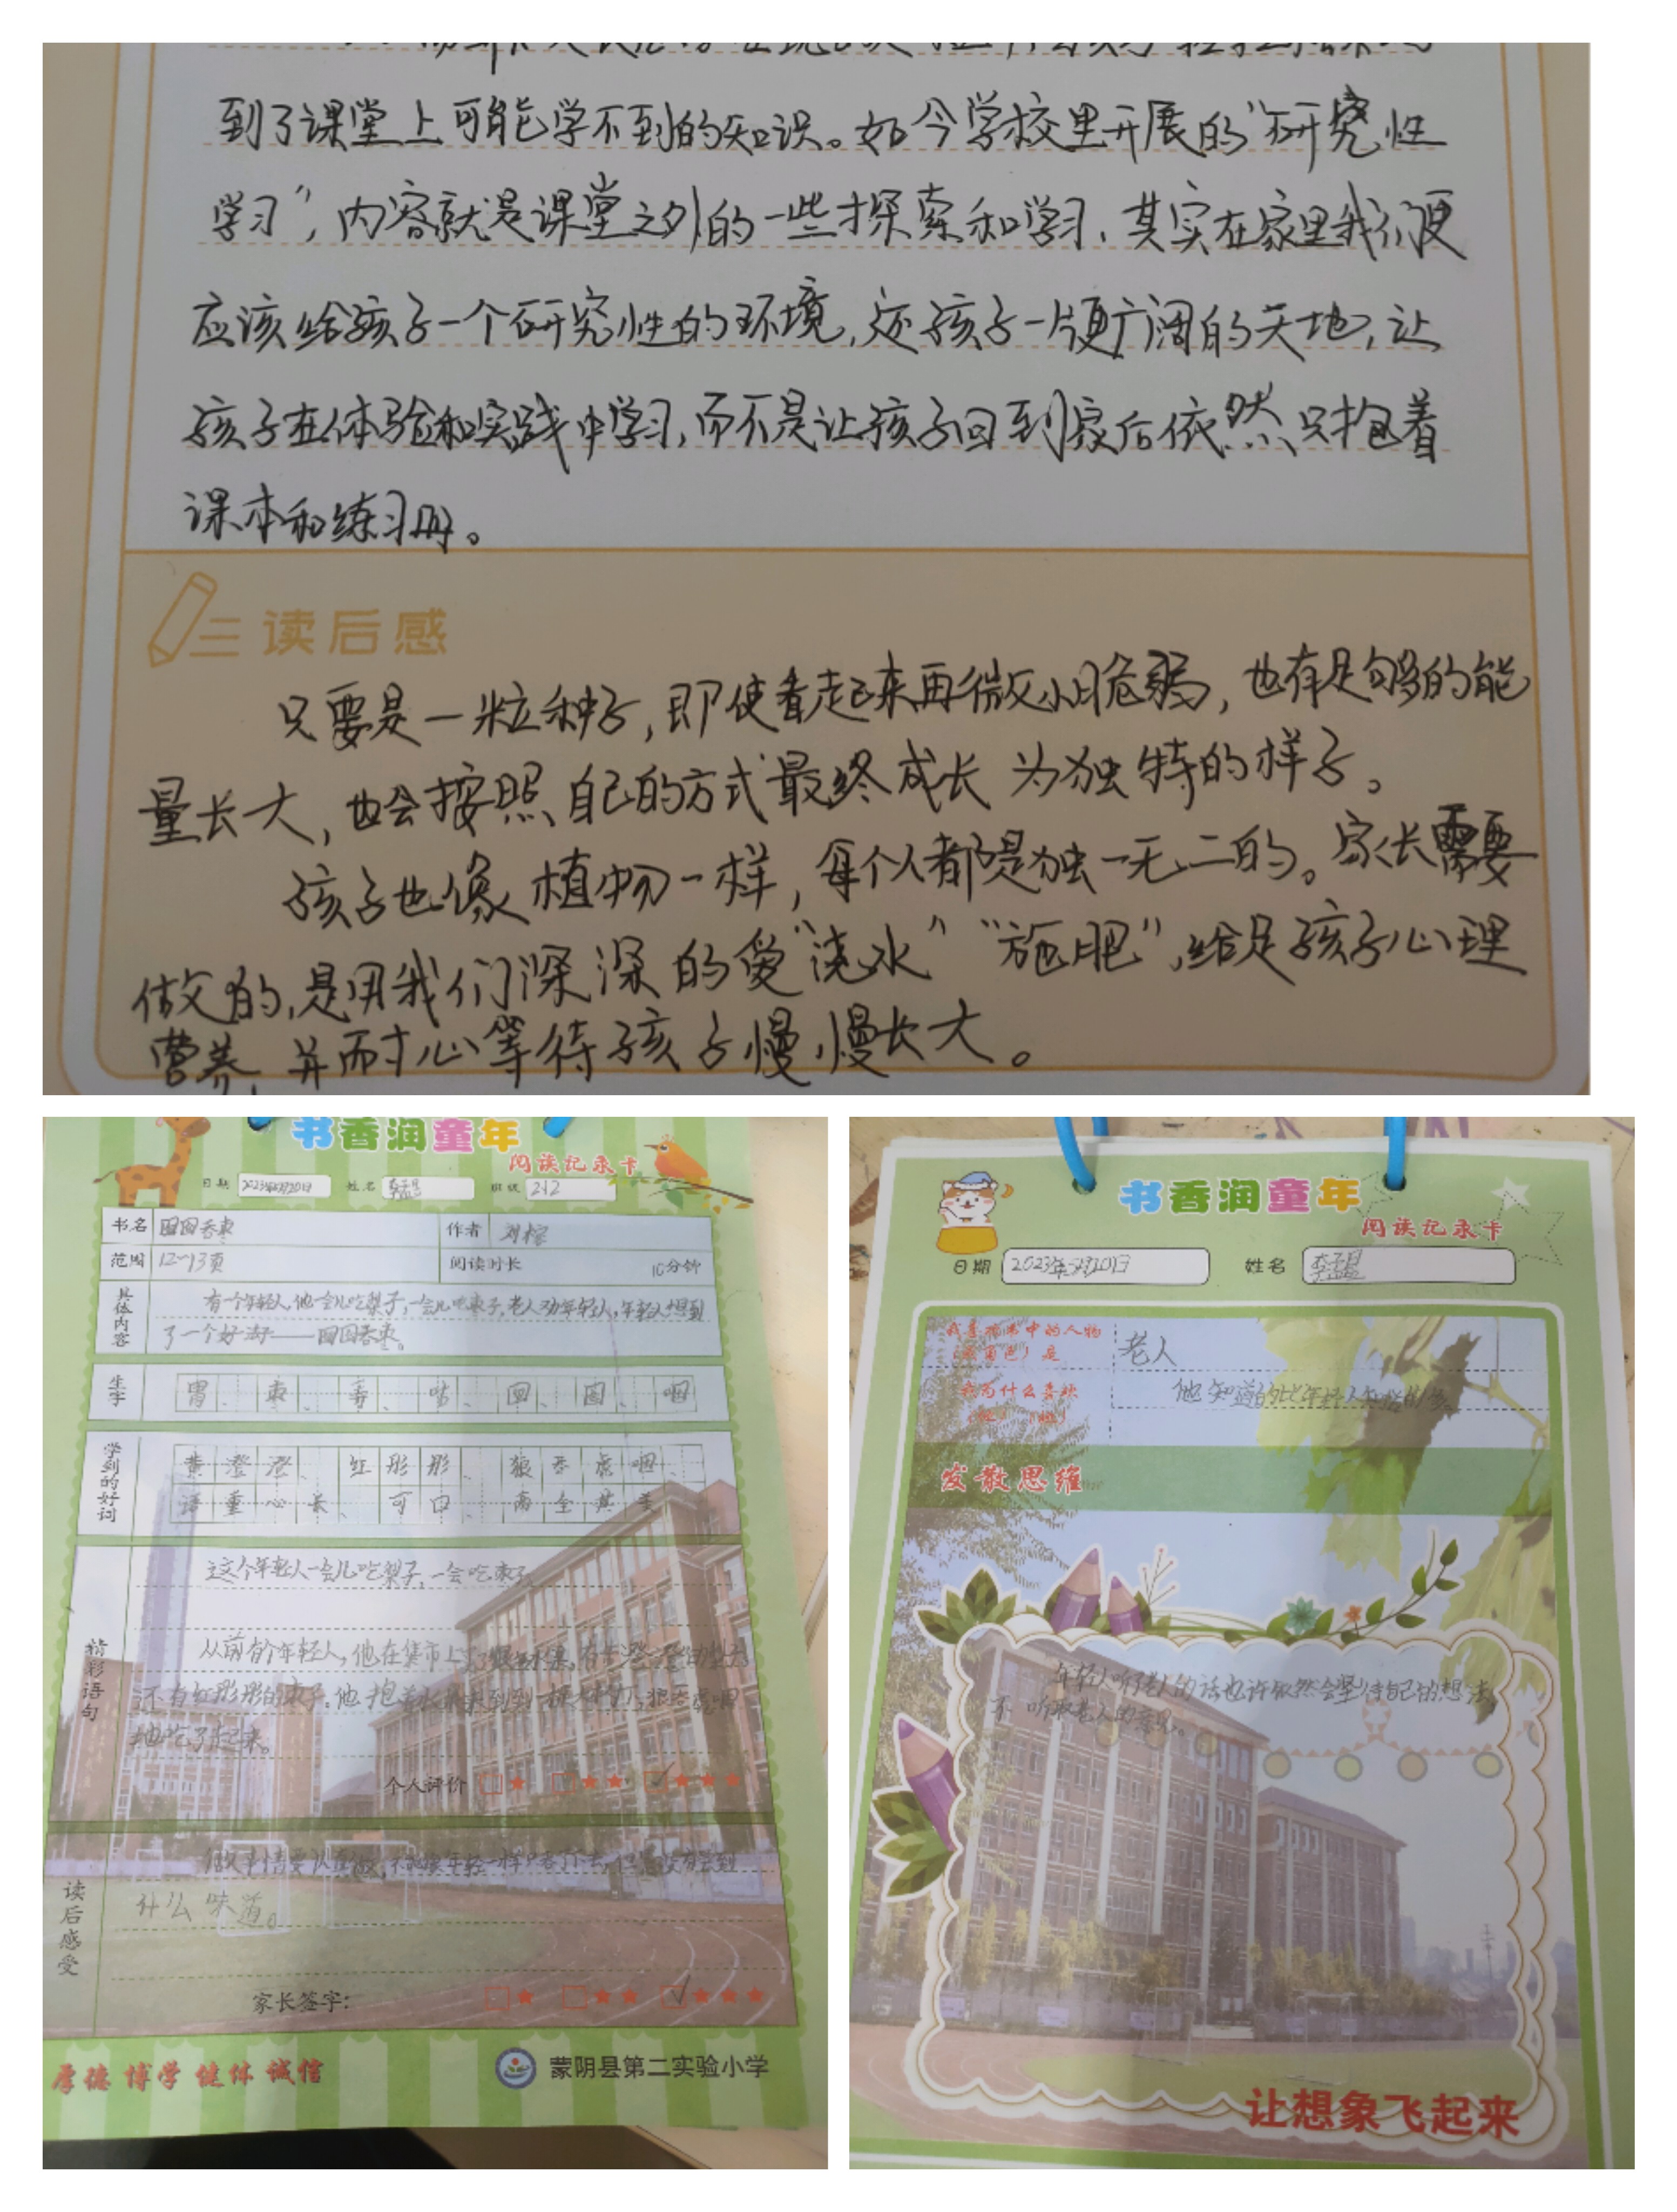 到了课堂上可能学不到的知识。如今学校里开展的“研究性
学习”，内容就是课堂之外的一些探索和学习，其实在家里我们更
应该给孩子一个研究性的环境，还孩子一片更广阔的天地，让
孩子在体验和实践中学习，而不是让孩子回到家后依然只抱着
课本和练习册。
读后感
只要是一粒种子，即使看起来再微小脆弱，也有足够的能
量长大，也会按照自己的方式最终成长为独特的样子。
孩子也像植物一样，每个人都是独一无二的。家长需要
做的，是用我们深深的爱“浇水”“施肥”，给足孩子心理
营养，并耐心等待孩子慢慢长大。
书香润童年
阅读记录卡
日期 姓名 班级 2.12
书名 囫囵吞枣 作者
范围 12~13页 阅读时长 10分钟
具体内容
有一个年轻人，他一会儿吃梨子，一会儿吃枣子，老人劝年轻人，年轻人想到
了一个好法子——囫囵吞枣。
生字
胃、枣、囫、囵、咽
学到的好词
黄澄澄、红彤彤、狼吞虎咽、
语重心长、可口、两全其美
精彩语句
这个年轻人一会儿吃梨子，一会吃枣子。
从前有个年轻人，他在集市上买了很多水果，有黄澄澄的梨子
还有红彤彤的枣子。他抱着水果来到一棵大树下，狼吞虎咽
地吃了起来。
个人评价
读后感受
做事情要认真做，不能像年轻人一样只吞下去，但是没有尝到
什么味道。
家长签字：
厚德 博学 健体 诚信
蒙阴县第二实验小学
书香润童年
阅读记录卡
日期 姓名
我喜欢书中的人物
（或角色）是 老人
我为什么喜欢
他知道的比年轻人知道的多。
发散思维
年轻人听了老人的话也许依然会坚持自己的想法，
不听取老人的意见。
让想象飞起来